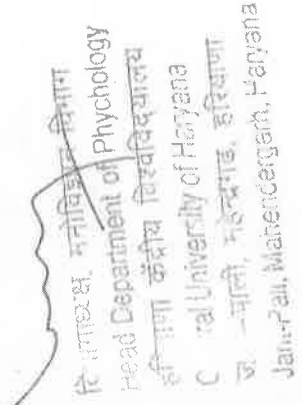 विभागाध्यक्ष, मनोविज्ञान विभाग
Head Department of Phychology
हरियाणा केंद्रीय विश्वविद्यालय
University of Haryana
पाली, महेन्द्रगढ़, हरियाणा
Pali, Mahendergarh, Haryana